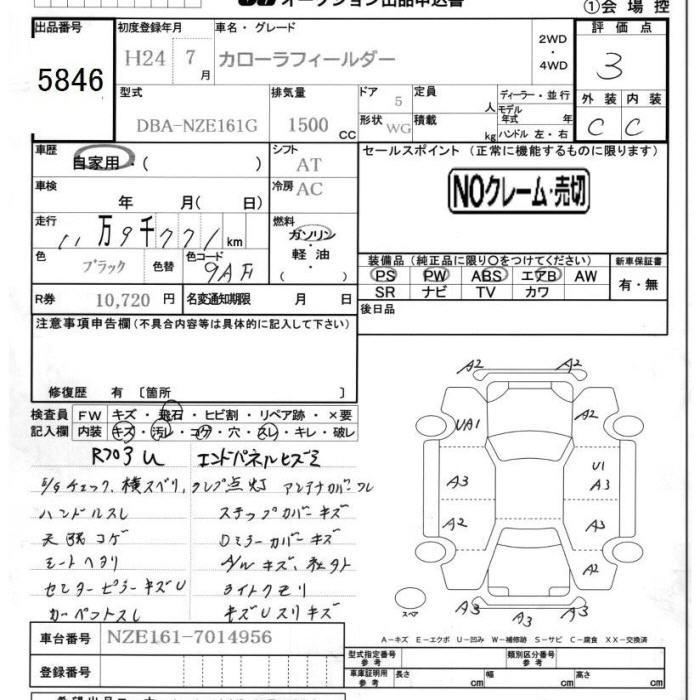 オークション出品申込書
①会場控
出品番号
5846
初度登録年月
H24 7月
車名・グレード
カローラフィールダー
2WD
・
4WD
評価点
3
外装 内装
C C
型式
DBA-NZE161G
排気量
1500 CC
ドア 5
形状 WG
定員 人
積載 kg
ディーラー・並行
モデル年式 年
ハンドル 左・右
車歴
自家用・( )
シフト AT
冷房 AC
車検
年 月( 日)
走行
11万9千771km
燃料
ガソリン
・
軽油
( )
色
ブラック
色替
色コード
セールスポイント (正常に機能するものに限ります)
NOクレーム・売切
装備品 (純正品に限り○をつけてください)
PS PW ABS エアB AW
SR ナビ TV カワ
新車保証書
有・無
R券 10,720 円
名変通知期限 月 日
後日品
注意事項申告欄(不具合内容等は具体的に記入して下さい)
修復歴 有 〔箇所 〕
検査員記入欄
FW キズ・飛石・ヒビ割・リペア跡・×要
内装 キズ・汚レ・コゲ・穴・スレ・キレ・破レ
エンドパネルヒズミ
チェック、横スベリ、クレプ点灯 アンテナカバー
ハンドルスレ
ステップカバーキズ
天張コゲ
Dミラーカバーキズ
シートヘタリ
A/Wキズ、社外
センターピラーキズU
ライトクモリ
カーペットスレ
キズUスリキズ
A2
A2
UA1
A2
A3
U1
A3
A2
A3
A2
A3
A3
A3
スペア
A-キズ E-エクボ U-凹み W-補修跡 S-サビ C-腐食 XX-交換済
車台番号
NZE161-7014956
登録番号
型式指定番号
参考
類別区分番号
参考
車庫証明用
参考
長さ cm
幅 cm
高さ cm